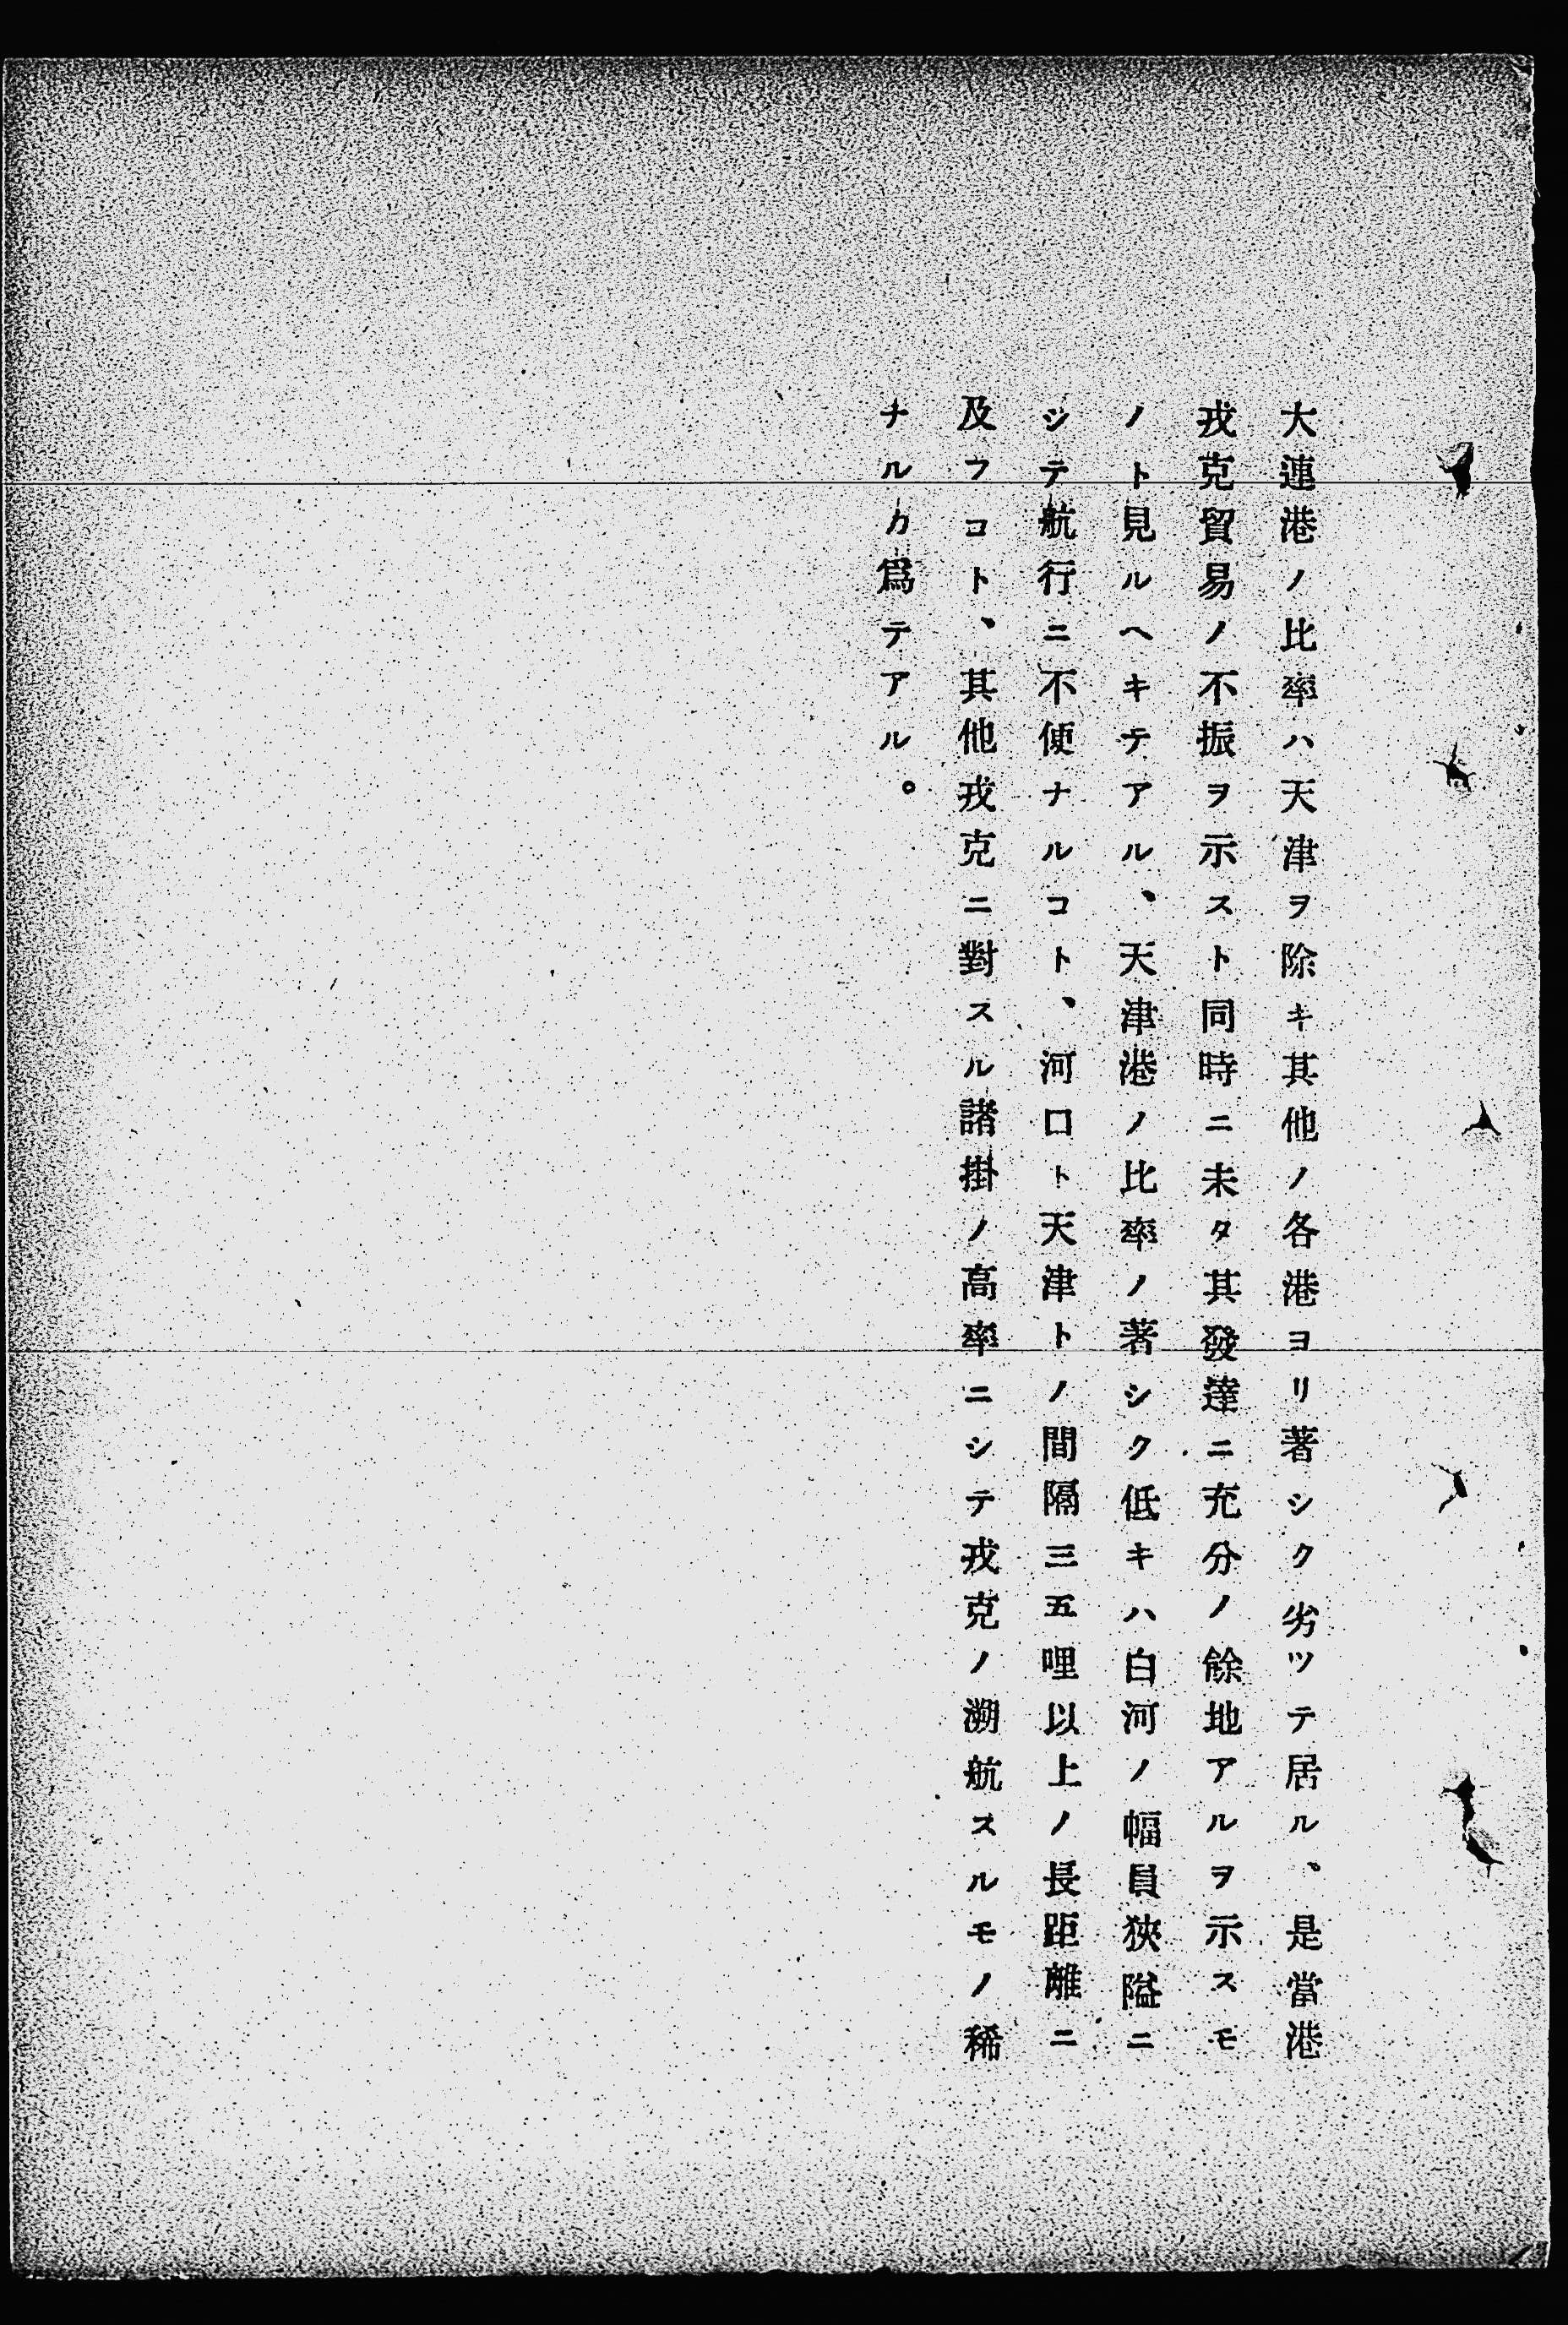 大連港ノ比率ハ天津ヲ除キ其他ノ各港ヨリ著シク劣ツテ居ル、是當港
戎克貿易ノ不振ヲ示スト同時ニ未タ其發達ニ充分ノ餘地アルヲ示スモ
ノト見ルヘキテアル、天津港ノ比率ノ著シク低キハ白河ノ幅員狹隘ニ
シテ航行ニ不便ナルコト、河口ト天津トノ間隔三五哩以上ノ長距離ニ
及フコト、其他戎克ニ對スル諸掛ノ高率ニシテ戎克ノ溯航スルモノ稀
ナルカ爲テアル。